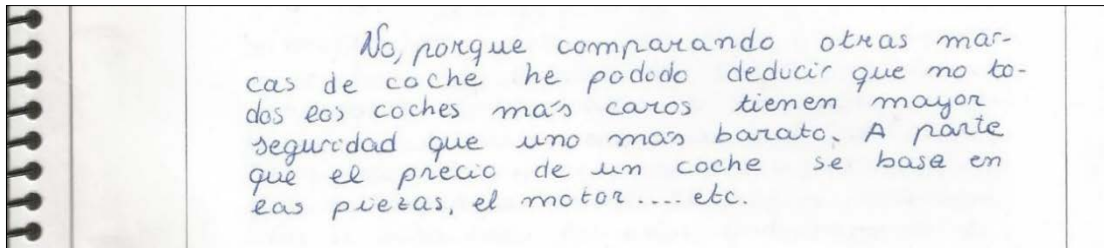 No, porque comparando otras mar-
cas de coche he podido deducir que no to-
dos los coches más caros tienen mayor
seguridad que uno mas barato. A parte
que el precio de un coche se basa en
las piezas, el motor.... etc.